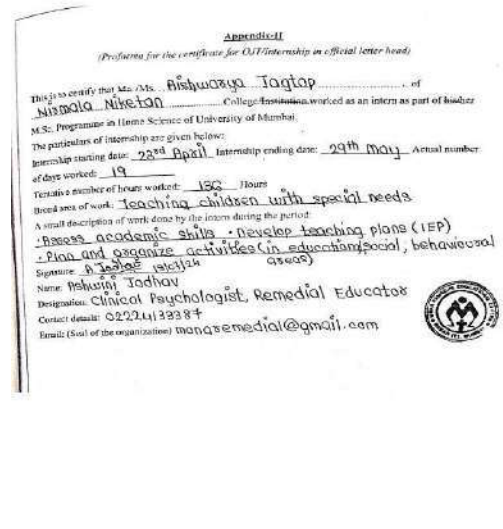 Appendix-II
(Proforma for the certificate for OJT/internship in official letter head)
This is to certify that Mr./Ms. Aishwarya Jagtap, of
Nirmala Niketan College/Institution worked as an intern as part of his/her
M.Sc. Programme in Home Science of University of Mumbai.
The particulars of internship are given below:
Internship starting date: 23rd April Internship ending date: 29th May Actual number
of days worked: 19
Tentative number of hours worked: Hours
Broad area of work: Teaching children with special needs
A small description of work done by the intern during the period:
• Assess academic skills • Develop teaching plans (IEP)
• Plan and organize activities (in education/social, behavioural
areas)
Signature: A. Jadhav
Name: Ashwini Jadhav
Designation: Clinical Psychologist, Remedial Educator
Contact details: 02224133387
Email: (Seal of the organization) manaremedial@gmail.com